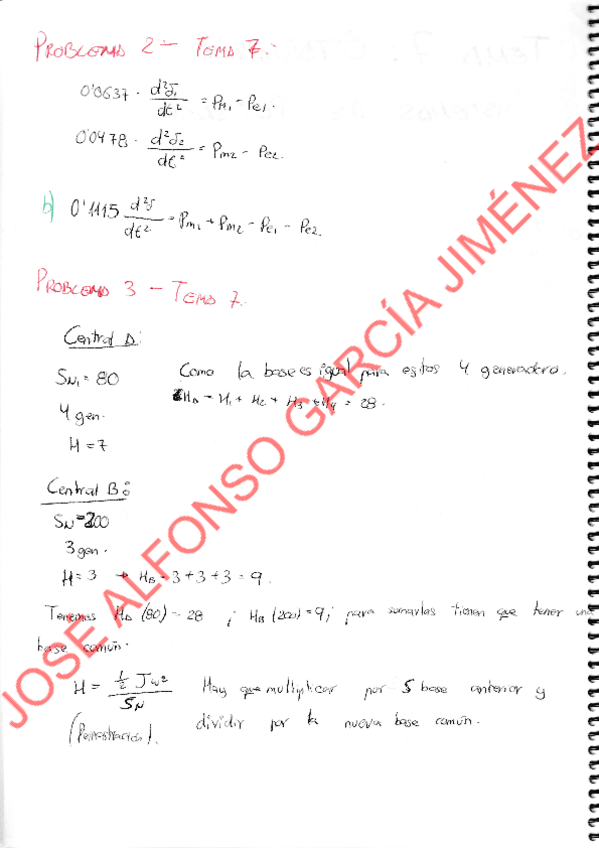 PROBLEMA 2 - TEMA 7.-
0'0637 · d²δ₁/dt² = Pm1 - Pe1.
0'0478 · d²δ₂/dt² = Pm2 - Pe2.
b) 0'1115 d²δ/dt² = Pm1 + Pm2 - Pe1 - Pe2.
PROBLEMA 3 - TEMA 7.
Central A:
SN1 = 80
Como la base es igual para estos 4 generadores.
4 gen.
HA = H1 + H2 + H3 + H4 = 28.
H = 7
Central B:
SN = 200
3 gen.
H = 3 → HB = 3+3+3 = 9.
Tenemos HA (80) = 28 ; HB (200) = 9; para sumarlas tienen que tener una
base común.
H = ½ Jω² / SN
Hay que multiplicar por S base anterior y
dividir por la nueva base común.
(Demostración).
JOSE ALFONSO GARCÍA JIMÉNEZ